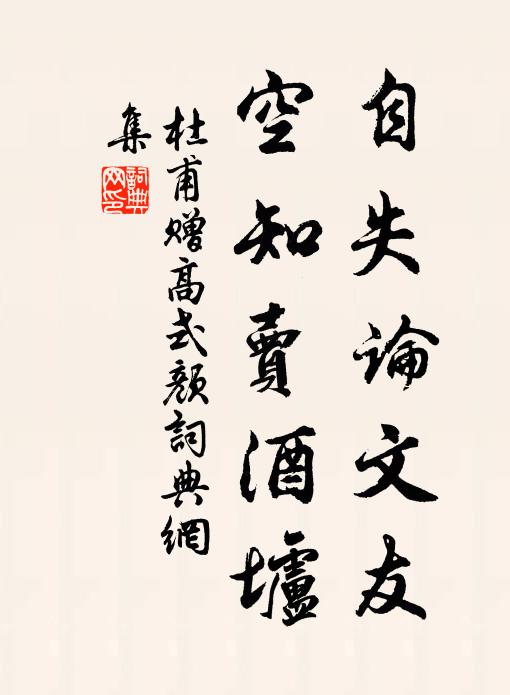 自失論文友
空知賣酒壚
杜甫贈高式顏詞典網
集
詞典
網印